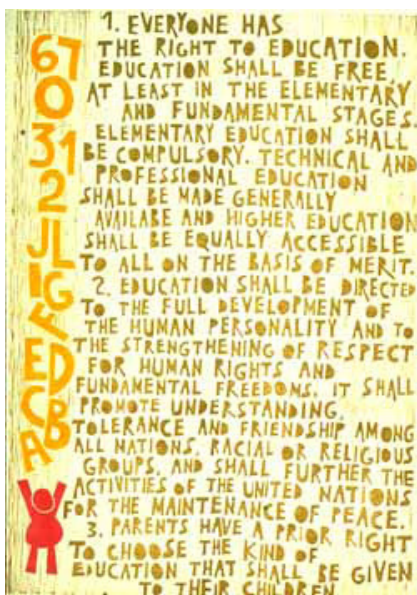 1. EVERYONE HAS
THE RIGHT TO EDUCATION.
EDUCATION SHALL BE FREE,
AT LEAST IN THE ELEMENTARY
AND FUNDAMENTAL STAGES.
ELEMENTARY EDUCATION SHALL
BE COMPULSORY. TECHNICAL AND
PROFESSIONAL EDUCATION
SHALL BE MADE GENERALLY
AVAILABE AND HIGHER EDUCATION
SHALL BE EQUALLY ACCESSIBLE
TO ALL ON THE BASIS OF MERIT.
2. EDUCATION SHALL BE DIRECTED
TO THE FULL DEVELOPMENT OF
THE HUMAN PERSONALITY AND TO
THE STRENGTHENING OF RESPECT
FOR HUMAN RIGHTS AND
FUNDAMENTAL FREEDOMS. IT SHALL
PROMOTE UNDERSTANDING,
TOLERANCE AND FRIENDSHIP AMONG
ALL NATIONS, RACIAL OR RELIGIOUS
GROUPS, AND SHALL FURTHER THE
ACTIVITIES OF THE UNITED NATIONS
FOR THE MAINTENANCE OF PEACE.
3. PARENTS HAVE A PRIOR RIGHT
TO CHOOSE THE KIND OF
EDUCATION THAT SHALL BE GIVEN
TO THEIR CHILDREN
67
0
31
2
JL
IG
F
ED
CB
A